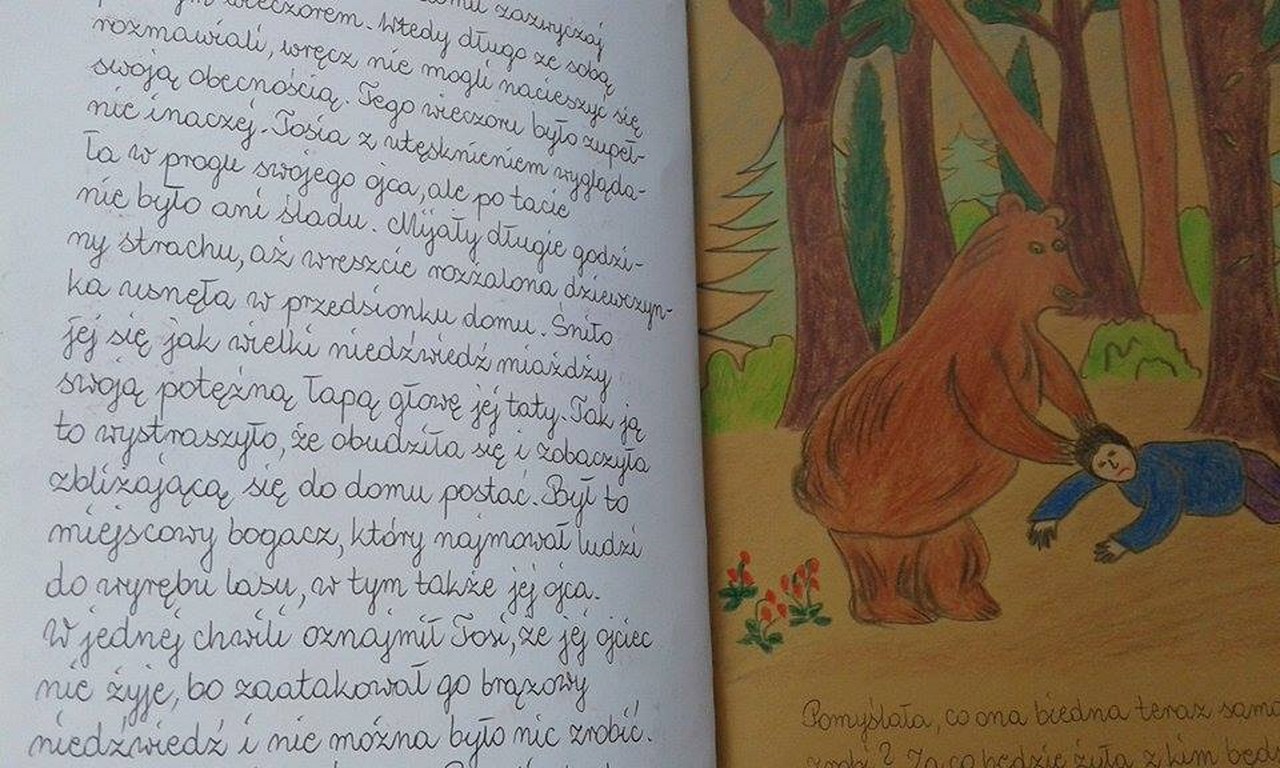 zazwyczaj
wieczorem. Wtedy długo ze sobą
rozmawiali, wręcz nie mogli nacieszyć się
swoją obecnością. Tego wieczoru było zupeł-
nie inaczej. Tosia z utęsknieniem wygląda-
ła w progu swojego ojca, ale po tacie
nie było ani śladu. Mijały długie godzi-
ny strachu, aż wreszcie rozżalona dziewczyn-
ka usnęła w przedsionku domu. Śniło
jej się jak wielki niedźwiedź miażdży
swoją potężną łapą głowę jej taty. Tak ją
to wystraszyło, że obudziła się i zobaczyła
zbliżającą się do domu postać. Był to
miejscowy bogacz, który najmował ludzi
do wyrębu lasu, w tym także jej ojca.
W jednej chwili oznajmił Tosi, że jej ojciec
nie żyje, bo zaatakował go brązowy
niedźwiedź i nie można było nic zrobić.
Pomyślała, co ona biedna teraz sama
zrobi? Za co będzie żyła, z kim będ